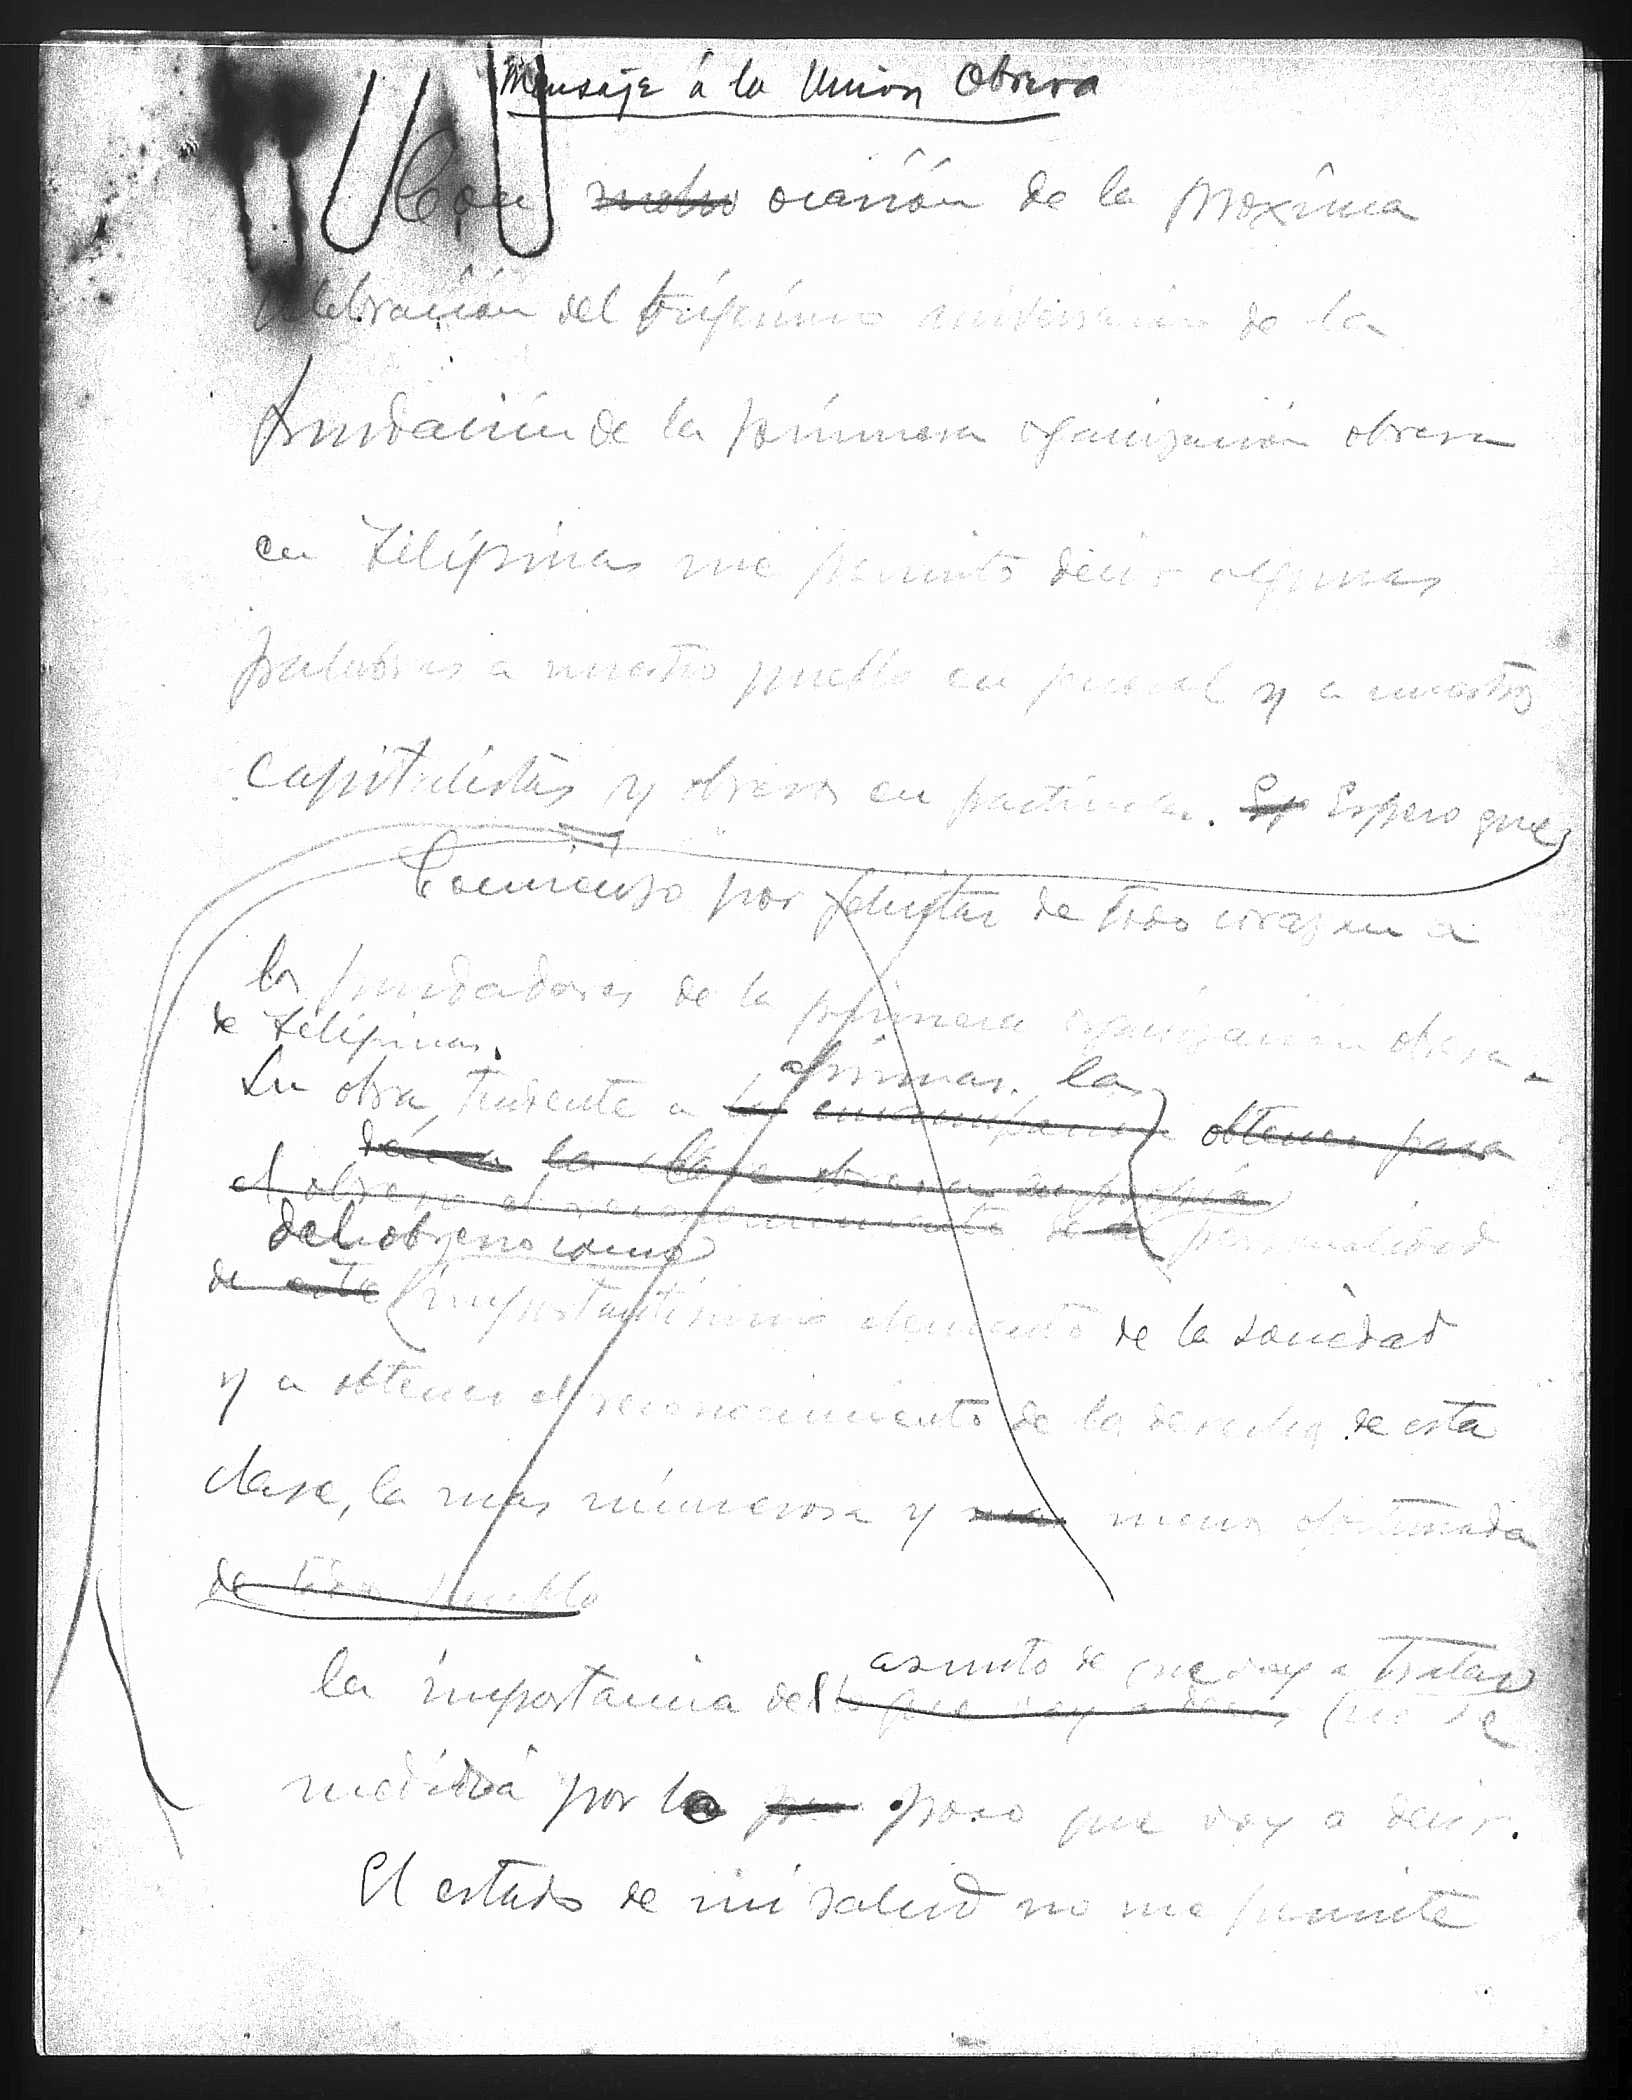 Mensaje á la Union Obrera
Con motivo ocasión de la proxima
celebración del trigésimo aniversario de la
fundación de la primera organización obrera
en Filipinas me permito decir algunas
palabras a nuestro pueblo en general y a nuestros
capitalistas y obreros en particular. Esp Espero que
Comienzo por felicitar de todo corazon a
los fundadores de la primera organización obrera
de Filipinas.
afirmar la
Su obra, tendente a la emancipación obtener para
la clase obrera su propia
el obrero el reconocimiento de la personalidad
del obrero como
de este importantisimo elemento de la sociedad
y a obtener el reconocimiento de los derechos de esta
clase, la mas numerosa y mas menos afortunada
de todo pueblo
asunto de que voy a tratar
la importancia del lo que voy a decir no se
medirá por lo poco que voy a decir.
El estado de mi salud no me permite